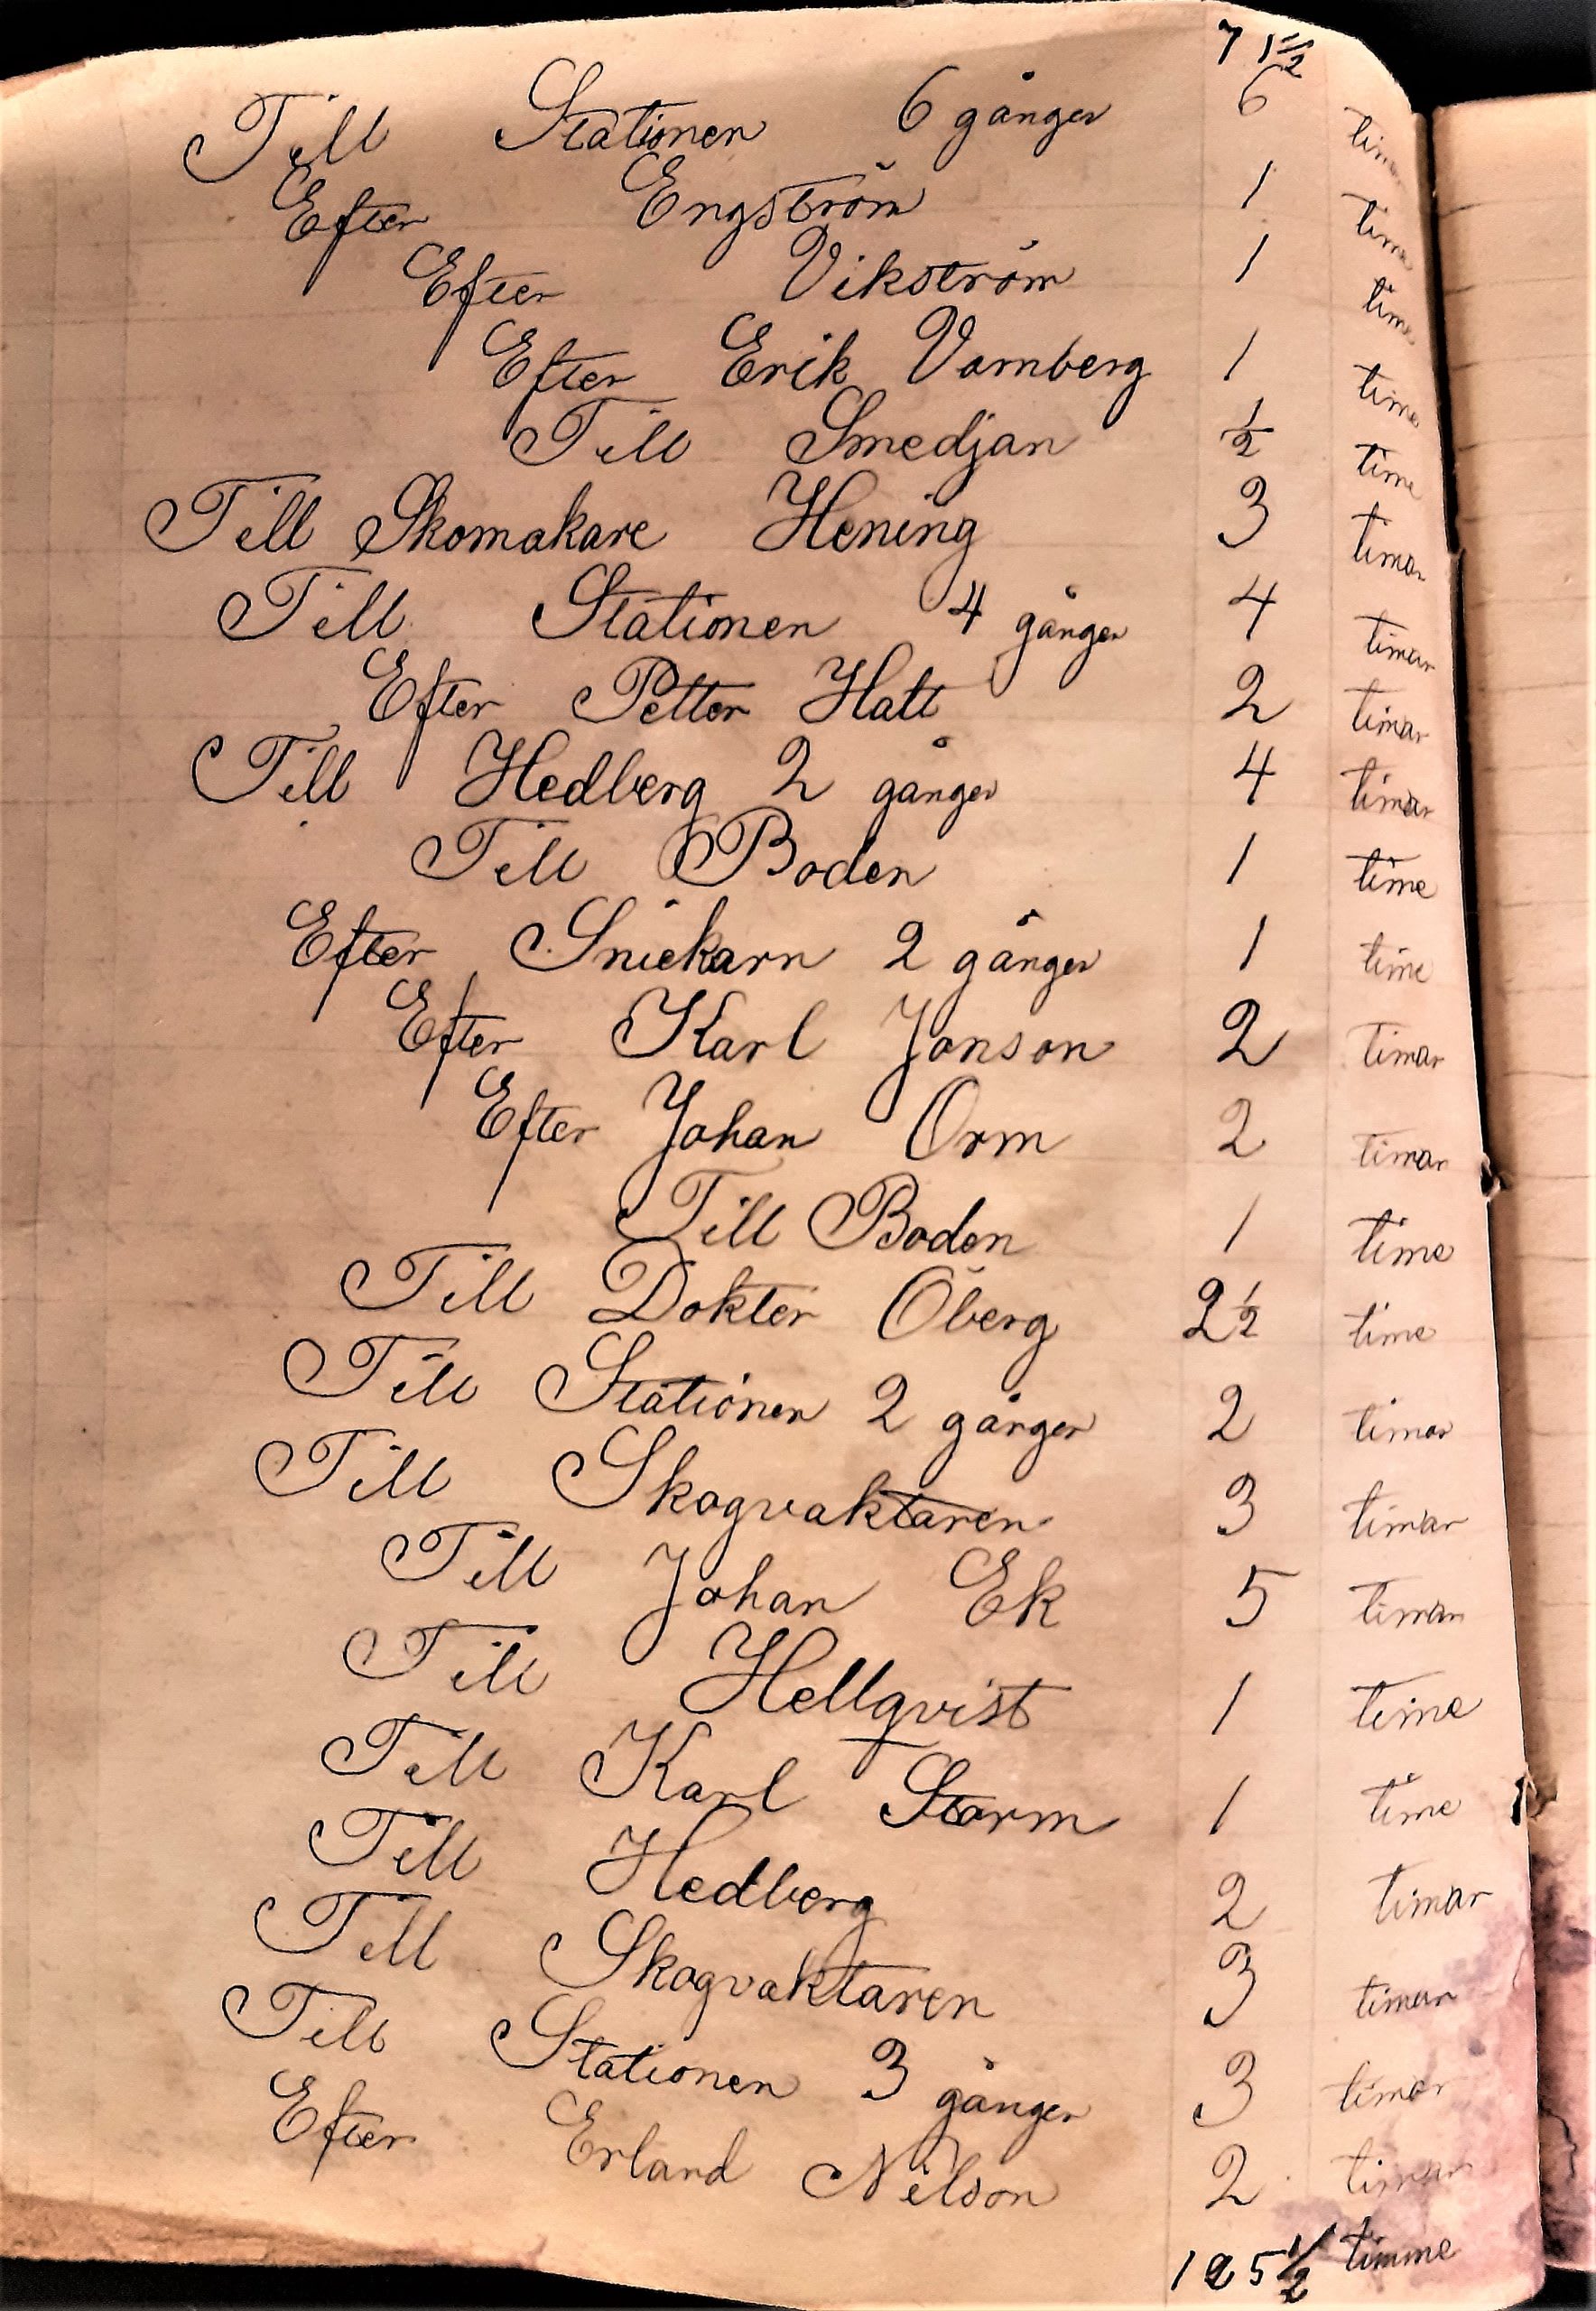 71 1/2
Till Stationen 6 gånger 6 timar
Efter Engström 1 time
Efter Vikström 1 time
Efter Erik Varnberg 1 time
Till Smedjan 1/2 time
Till Skomakare Hening 3 timar
Till Stationen 4 gånger 4 timar
Efter Petter Hatt 2 timar
Till Hedberg 2 gånger 4 timar
Till Boden 1 time
Efter Sniekarn 2 gånger 1 time
Efter Karl Jonson 2 timar
Efter Johan Orm 2 timar
Till Boden 1 time
Till Dokter Öberg 2 1/2 time
Till Stationen 2 gånger 2 timar
Till Skogvaktaren 3 timar
Till Johan Ek 5 timar
Till Hellqvist 1 time
Till Karl Storm 1 time
Till Hedberg 2 timar
Till Skogvaktaren 3 timar
Till Stationen 3 gånger 3 timar
Efter Erland Nilson 2 timar
125 1/2 timme